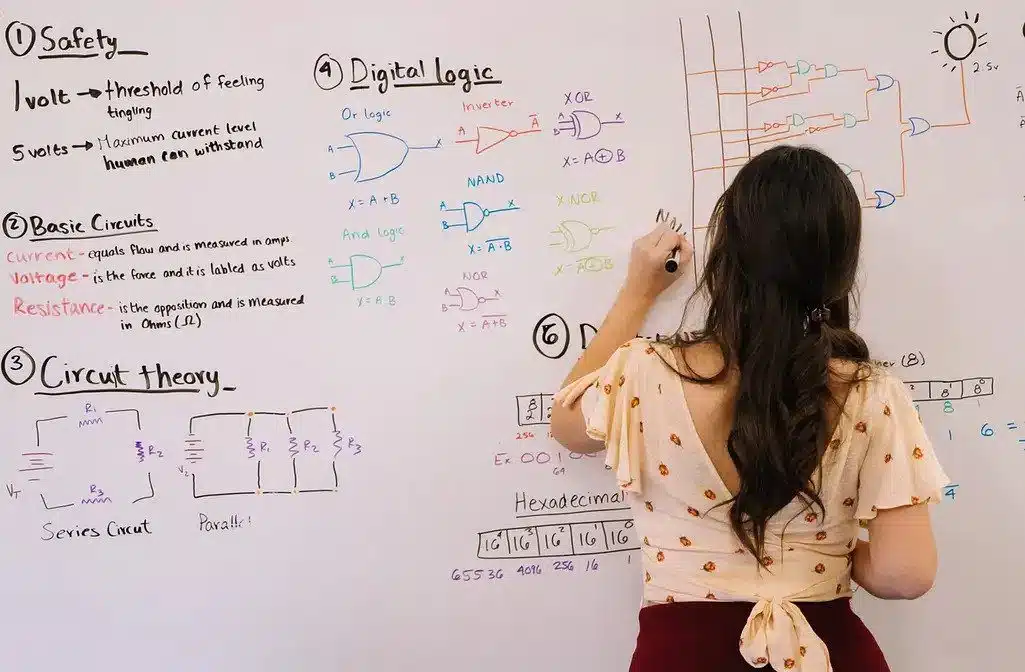 ① Safety
1 volt → threshold of feeling
tingling
5 volts → Maximum current level
human can withstand
② Basic Circuits
Current - equals flow and is measured in amps
Voltage - is the force and it is labled as volts
Resistance - is the opposition and is measured
in Ohms (Ω)
③ Circut theory
R₁
R₂
R₃
V_T
Series Circut
V₂
R₁
R₂
R₃
Parallel
④ Digital logic
Or logic
A
B
X
X = A + B
Inverter
A
A̅
XOR
A
B
X
X = A ⊕ B
NAND
A
B
X
X = \overline{A · B}
And logic
X = A B
NOR
A
B
X
X = \overline{A + B}
X NOR
X = \overline{A ⊕ B}
2.5v
256
Ex 001
64
Hexadecimal
16⁴ 16³ 16² 16¹ 16⁰
65536 4096 256 16 1
(8)
8¹ 8⁰
8
1 6 =
4